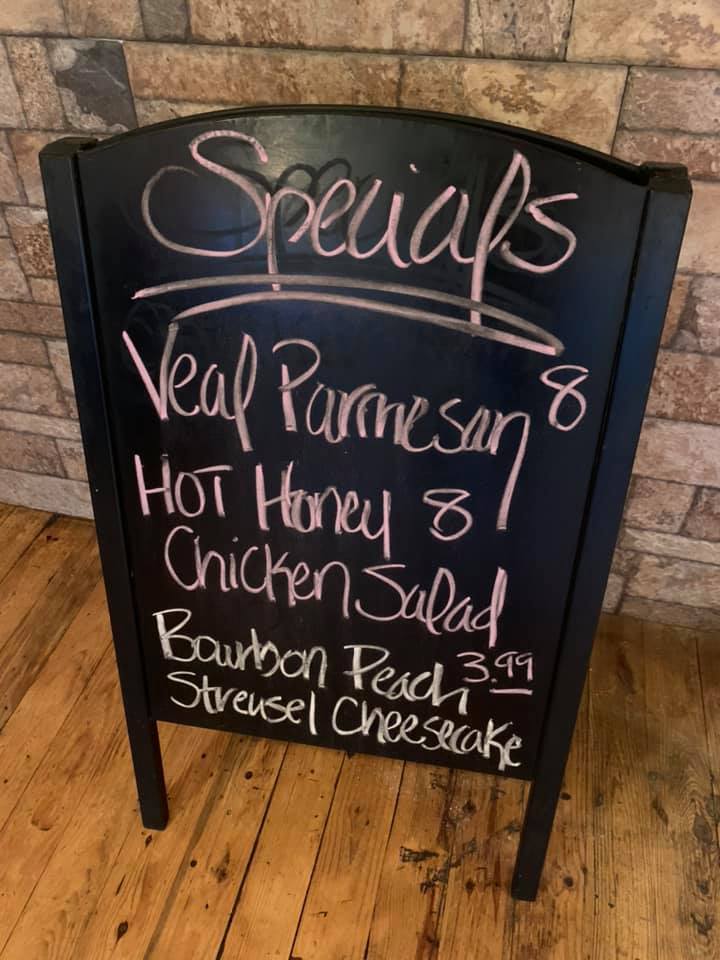 Specials
Veal Parmesan 8
HOT Honey 8
Chicken Salad
Bourbon Peach 3.99
Streusel Cheesecake